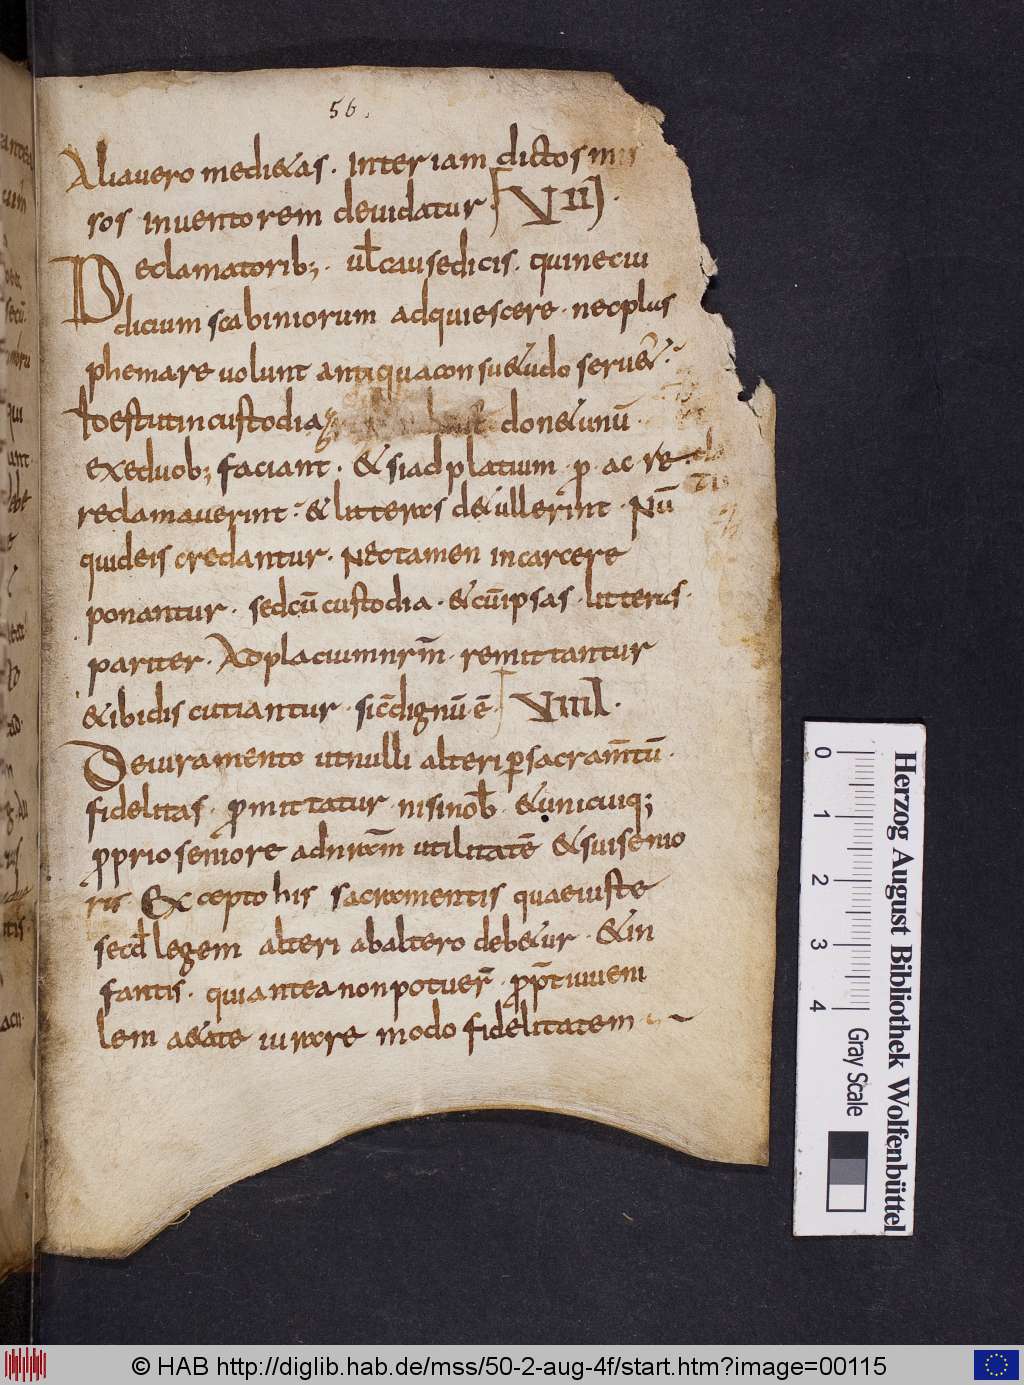 56.
Aliavero medi&as. Inter iam dictos mis
sos inventorem devidatur. VII.
Declamatorib; vł causedicis. quineciu
dicium scabiniorum adquiescere. necplus
phemare volunt antiqua consu&udo serv&ur.
Idest ut in custodia don& unū
exeduob; faciant. & siad platium p ac re
reclamaverint. & litteras de&ullerint. Nū
quideis credantur. Nectamen incarcere
ponantur. sedcū custodia. & cūipsas. litteris.
pariter. Adplaciumnrm̄. remittantur
& ibidis cutiantur. sic̄dignū ē VIII.
Deiuramento utnulli alteri psacram̄tū.
fidelitas. promittatur. nisi nob̄. & unicuiq;
proprio seniore adnrām utilitatē & suisenio
ris Excepto his sacramentis quaeiuste
secd̄ legem alteri abaltero deb&ur. & in
fantis. quianteanonpotuer̄. propt̄iuveni
lem a&ate iurare modo fidelitatem
Herzog August Bibliothek Wolfenbüttel
0 1 2 3 4
Gray Scale
© HAB http://diglib.hab.de/mss/50-2-aug-4f/start.htm?image=00115